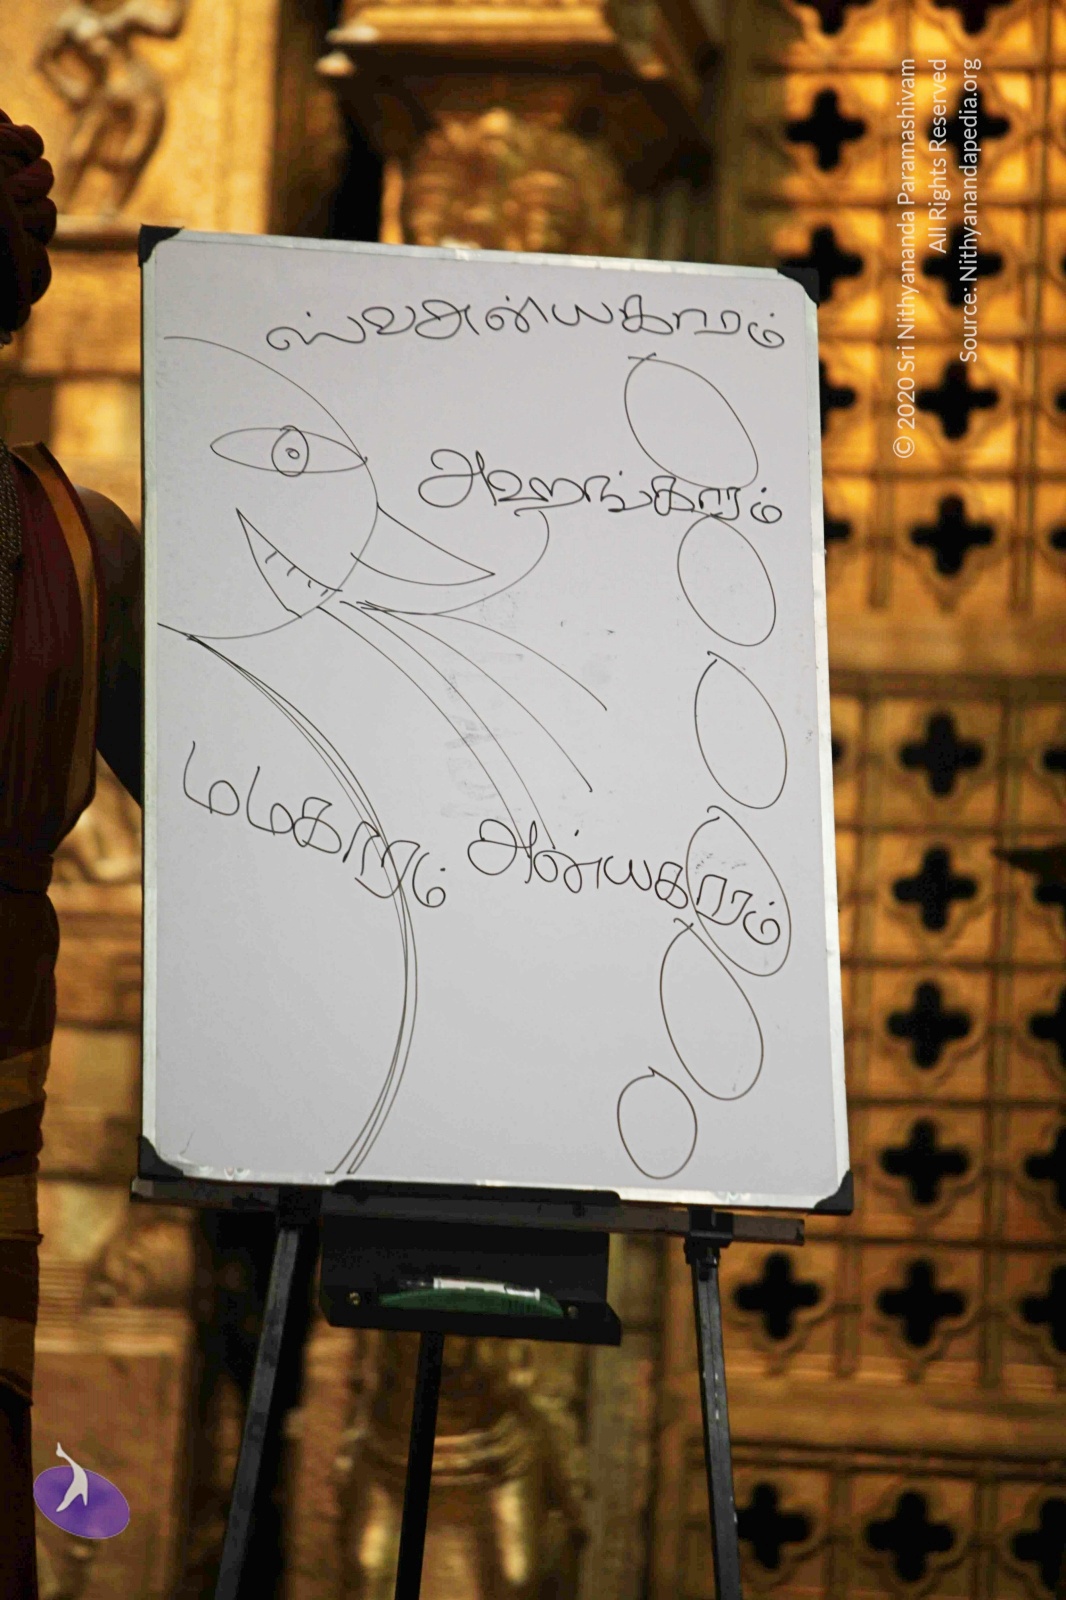 ஸ்வஅன்யகாரம்
அஹங்காரம்
மமகாரம்
அன்யகாரம்
© 2020 Sri Nithyananda Paramashivam
All Rights Reserved
Source: Nithyanandapedia.org